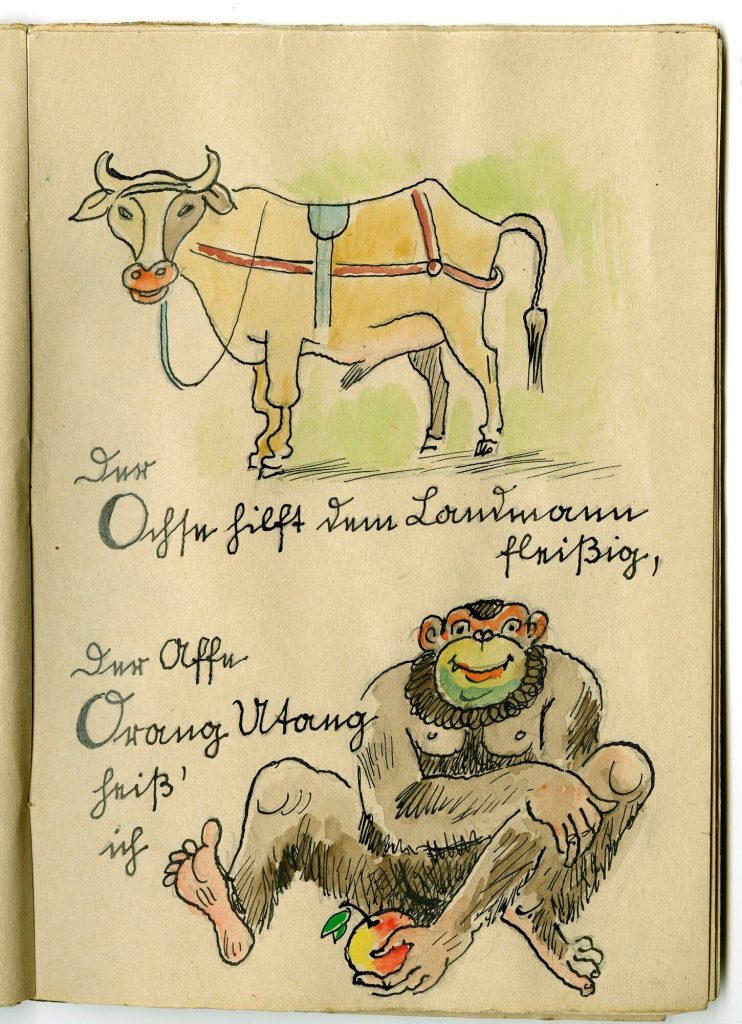 Der
Ochse hilft dem Landmann
fleißig,
Der Affe
Orang Utang
heiß'
ich